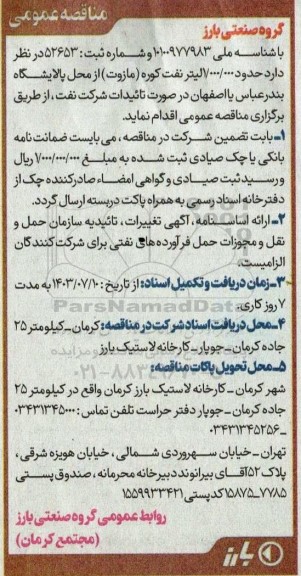 مناقصه عمومی
گروه صنعتی بارز
با شناسه ملی ۱۰۱۰۰۹۷۷۹۸۳ و شماره ثبت : ۵۲۶۵۳ در نظر
دارد حدود ۷/۰۰۰/۰۰۰ لیتر نفت کوره (مازوت) از محل پالایشگاه
بندرعباس یا اصفهان در صورت تائیدات شرکت نفت ، از طریق
برگزاری مناقصه عمومی اقدام نماید.
۱ــ بابت تضمین شرکت در مناقصه ، می بایست ضمانت نامه
بانکی یا چک صیادی ثبت شده به مبلغ ۷/۰۰۰/۰۰۰/۰۰۰ ریال
و رسید ثبت صیادی و گواهی امضاء صادرکننده چک از
دفترخانه اسناد رسمی به همراه پاکت دربسته ارسال گردد.
۲ــ ارائه اساسنامه ، آگهی تغییرات ، تائیدیه سازمان حمل و
نقل و مجوزات حمل فرآورده های نفتی برای شرکت کنندگان
الزامیست.
۳ــ زمان دریافت و تکمیل اسناد: از تاریخ : ۱۴۰۳/۰۷/۱۰ به مدت
۷ روز کاری.
۴ــ محل دریافت اسناد شرکت در مناقصه: کرمان ــ کیلومتر ۲۵
جاده کرمان ــ جوپار ــ کارخانه لاستیک بارز
۵ــ محل تحویل پاکات مناقصه:
شهر کرمان ــ کارخانه لاستیک بارز کرمان واقع در کیلومتر ۲۵
جاده کرمان ــ جوپار دفتر حراست تلفن تماس : ۰۳۴۳۱۳۴۵۰۰۰
ــ ۰۳۴۳۱۳۴۵۲۵۶
تهران ــ خیابان سهروردی شمالی ، خیابان هویزه شرقی ،
پلاک ۵۲ آقای بیرانوند دبیرخانه محرمانه ، صندوق پستی
۷۷۸۵ــ۱۵۸۷۵ کدپستی ۱۵۵۹۹۳۳۴۲۱
روابط عمومی گروه صنعتی بارز
(مجتمع کرمان)
بارز
ParsNamadData